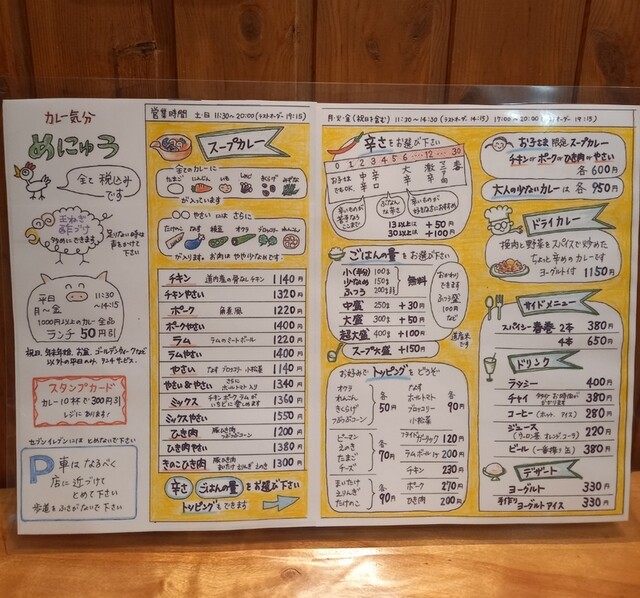 カレー気分
めにゅう
全て税込み
です
玉ねぎ
酢づけ
少なめにできます
足りない時は
声をかけて
下さい
平日
月〜金
11:30
〜14:15
1000円以上のカレー全品
ランチ50円引
祝日、年末年始、お盆、ゴールデンウィークなど
以外の平日のみ、ランチサービス。
スタンプカード
カレー10杯で300円引
レジにあります!
セブンイレブンには とめないで下さい
P 車は なるべく
店に近づけて
とめて下さい
歩道をふさがないで下さい
営業時間 土・日 11:30〜20:00(ラストオーダー 19:15)
スープカレー
全てのカレーに
たまご にんじん いも しめじ きくらげ みずな
が入っています
やさいには さらに
たけのこ なす 枝豆 オクラ ブロッコリー れんこん
が入ります。
チキン 道内産の骨なしチキン 1140円
チキンやさい 1320円
ポーク 角煮風 1220円
ポークやさい 1400円
ラム ラムのミートボール 1220円
ラムやさい 1400円
やさい なす ブロッコリー 小松菜 1160円
やさい&やさい さらに ホールトマト入り 1340円
ミックス チキン ポーク ラムが いちどに楽しめます 1360円
ミックスやさい 1550円
ひき肉 豚ひき肉 つぶつぶコーン 1200円
ひき肉やさい 1380円
きのこひき肉 1300円
辛さ ごはんの量 をお選び下さい
トッピングもできます
月・火・金(祝日を含む) 11:30〜14:30(ラストオーダー 14:15) 17:00〜20:00
辛さ をお選び下さい
0 1 2 3 4 5 6 … 12 … 30
お子さま
でもOK
中辛
辛口
大辛
激辛
13以上は +50円
30以上は +100円
ごはんの量 をお選び下さい
小(半分) 100g
少なめ 150g
ふつう 200g
無料
中盛 250g +30円
大盛 300g +50円
超大盛 400g +100円
スープ大盛 +150円
おかわり
できます
ふつう盛
100円
など
お好みで トッピング を どうぞ
オクラ
れんこん
きくらげ
つぶつぶコーン
各50円
なす
ホールトマト
ブロッコリー
小松菜
各90円
ピーマン
えのき
たまご
チーズ
各70円
フライドガーリック 120円
ラムボール1ケ 200円
チキン 230円
まいたけ
えりんぎ
たけのこ
各90円
ポーク 270円
ひき肉 200円
お子さま 限定 スープカレー
チキン or ポーク or ひき肉 or やさい
各600円
大人の少ないカレーは 各950円
ドライカレー
挽肉と野菜をスパイスで炒めた
ちょっと辛めのカレーです
ヨーグルト付 1150円
サイドメニュー
スパイシー春巻 2本 380円
4本 650円
ドリンク
ラッシー 400円
チャイ 380円
コーヒー (ホット、アイス) 280円
ジュース (ウーロン茶 オレンジ コーラ) 220円
ビール (一番搾り缶) 380円
デザート
ヨーグルト 330円
手作り ヨーグルトアイス 330円